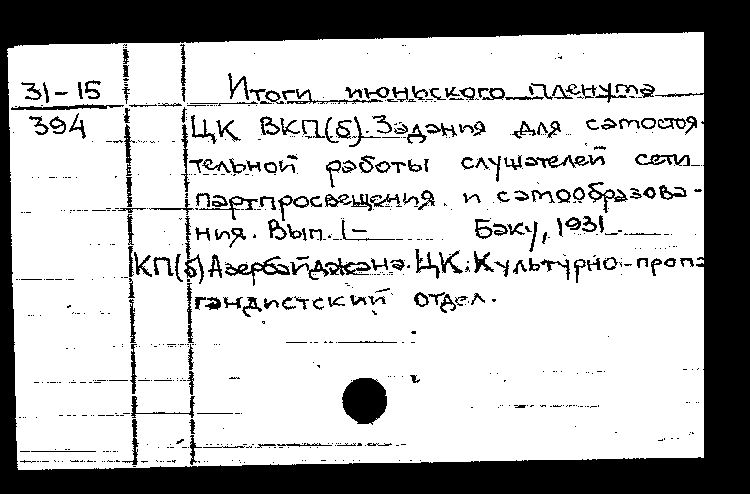 31-15 Итоги июньского пленума
394 ЦК ВКП(б). Задания для самостоя-
тельной работы слушателей сети
партпросвещения и самообразова-
ния. Вып. 1- Баку, 1931.
КП(б) Азербайджана. ЦК. Культурно-пропа
гандистский отдел.